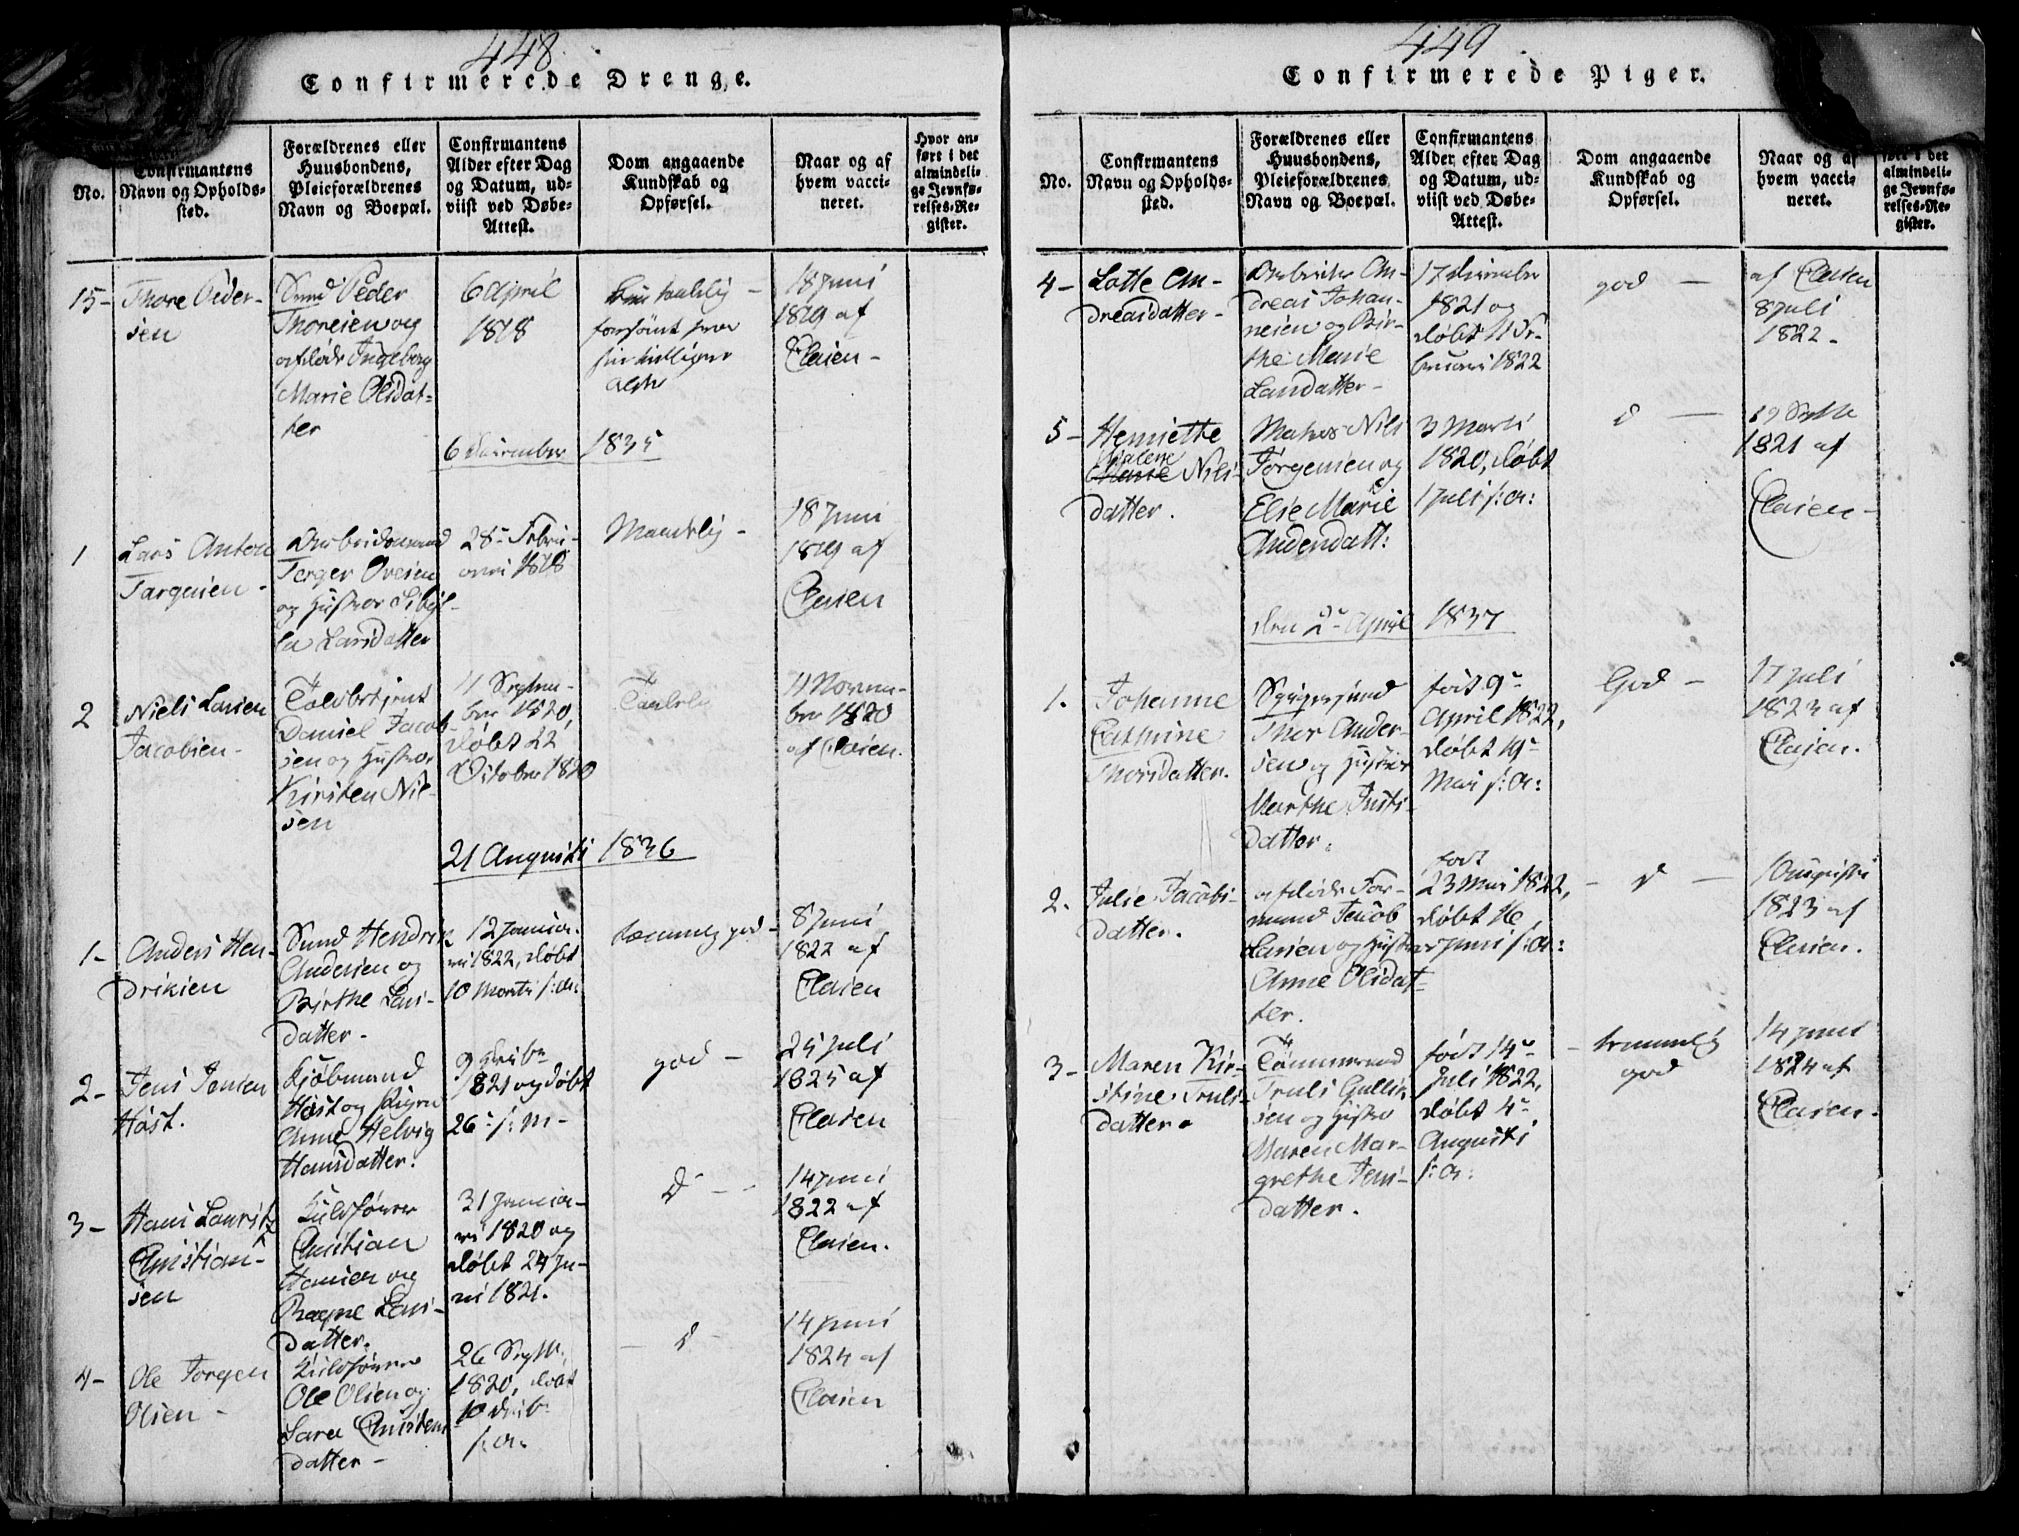 448.
Confirmerede Drenge.
No.
Confirmantens
Navn og Opholds-
sted.
Forældrenes eller
Huusbondens,
Pleieforældrenes
Navn og Boepæl.
Confirmantens
Alder efter Dag
og Datum, ud-
viist ved Døbe-
Attest.
Dom angaaende
Kundskab og
Opførsel.
Naar og af
hvem vacci-
neret.
Hvor an-
ført i det
almindeli-
ge Jevnfø-
relses-Re-
gister.
15- Thore Peder-
sen
Smed Peder
Thoresen og
afdøde Ingeborg
Marie Olsdat-
ter
6 April
1818
taalelig -
forsømt
Alder
18 Juni
1819 af
Clasen -
6 December 1835
1 Lars Anton
Targersen -
Arbeidsmand
Terger Ovesen
og Hustroe Sibyl-
la Larsdatter
28- Febru-
ari 1818
Maadelig -
18 Juni
1819 af
Clasen
2 Niels Larsen
Jacobsen -
Toldbetjent
Daniel Jacob-
sen og Hustroe
Kirsten Niel-
sen
11 Septem-
ber 1820,
døbt 22
October 1820
Taalelig
11 Novem-
ber 1820
af Clasen.
21 Augusti 1836
1- Anders Hen-
driksen
Smed Hendrik
Andersen og
Birthe Lars-
datter -
12 Janua-
ri 1822, døbt
10 Martii s: a:
temmelig god -
8 Juni
1822 af
Clasen
2- Jens Jensen
Høst.
Kjøbmand
Høst og Pigen
Anne Helvig
Hansdatter.
9 Decbr
1821 og døbt
26- s: M -
god -
25 Juli
1825 af
Clasen
3- Hans Lauritz
Christian-
sen
Christian
Hansen og
Ragne Lars-
datter.
31 Janua-
ri 1820 og
døbt 24 Ju-
ni 1821.
d- -
14 Juni
1822 af
Clasen.
4- Ole Jørgen
Olsen -
Ole Olsen og
Sara Christens
datter -
26 Septbr.
1820, døbt
10 Decbr
s: a:
- d -
14 Juni
1824 af
Clasen
449.
Confirmerede Piger.
No.
Confirmantens
Navn og Opholds-
sted.
Forældrenes eller
Huusbondens,
Pleieforældrenes
Navn og Boepæl.
Confirmantens
Alder efter Dag
og Datum, ud-
viist ved Døbe-
Attest.
Dom angaaende
Kundskab og
Opførsel.
Naar og af
hvem vacci-
neret.
ført i det
almindeli-
ge Jevnfø-
relses-Re-
gister.
4- Lotte An-
dreasdatter -
Arbeider An-
dreas Johan-
nesen og Bir-
the Marie
Larsdatter -
17 December
1821 og
døbt 11 Fe-
bruari 1822
god -
af Clasen
8 Juli
1822 -
5- Henriette
Malene
Marie Niels-
datter.
Matros Niels
Jørgensen og
Else Marie
Andersdatt:
3 Marti
1820, døbt
1 Juli s: a:
d -
19 Septbr
1821 af
Clasen -
den 2- April 1837
1. Johanne
Cathrine
Thorsdatter.
Thor Ander-
sen og Hustroe
Marthe Justs-
datter.
født 9-
April 1822,
døbt 19-
Mai s: a:
God -
17 Juli
1823 af
Clasen.
2. Julie Jacobs-
datter.
afdøde For-
mand Jacob
Larsen og Hustroe
Anne Olsdat-
ter.
født
23 Mai 1822,
døbt 16
Juni s: a:
- d -
1 Augusti
1823 af
Clasen.
3- Maren Kir-
stine Truls-
datter.
Tømmermand
Truls Gullic-
sen og Hustro
Maren Mar-
grethe Jens-
datter.
født 14-
Juli 1822,
døbt 4-
Augusti
s: a:
- temmelig
god
14 Juni
1824 af
Clasen.